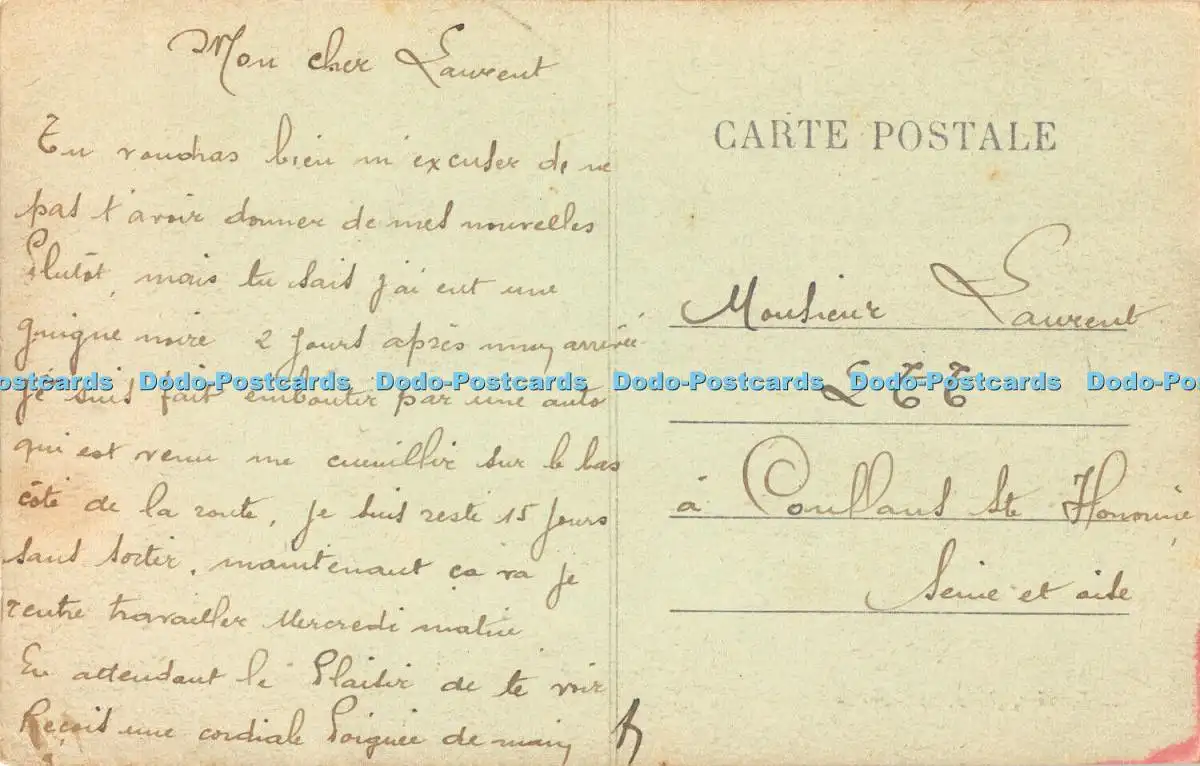 Mon cher Laurent
Tu voudras bien m'excuser de ne
pas t'avoir donner de mes nouvelles
Plutôt, mais tu sais j'ai eut une
guigne noire 2 jours après mon arrivée
je suis fait emboutir par une auto
qui est venu me cueuillir sur le bas
côté de la route, je suis resté 15 jours
sans sortir, maintenant ça va je
rentre travailler Mercredi matin
En attendant le Plaisir de te voir
Reçois une cordiale Poignée de main
CARTE POSTALE
Monsieur Laurent
à Conflans Ste Honorine
Seine et oise
Dodo-Postcards Dodo-Postcards Dodo-Postcards Dodo-Postcards Dodo-Postcards Dodo-Po